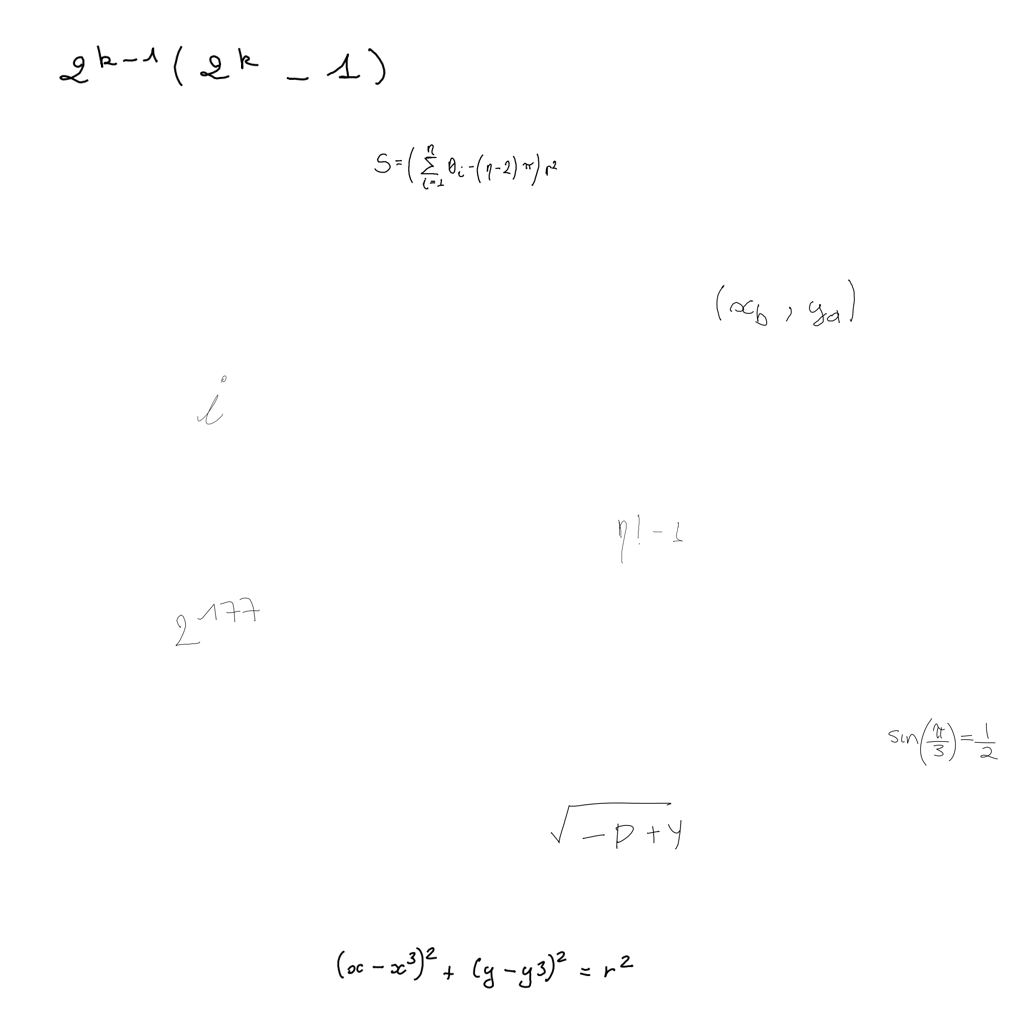 2^{k-1}(2^k - 1)
S=(\sum_{i=1}^{n} θ_i-(n-2)π)r^2
(x_b, y_a)
i
n!-1
2^{177}
sin(\frac{π}{3})=\frac{1}{2}
\sqrt{-p+y}
(x-x^3)^2+(y-y3)^2=r^2